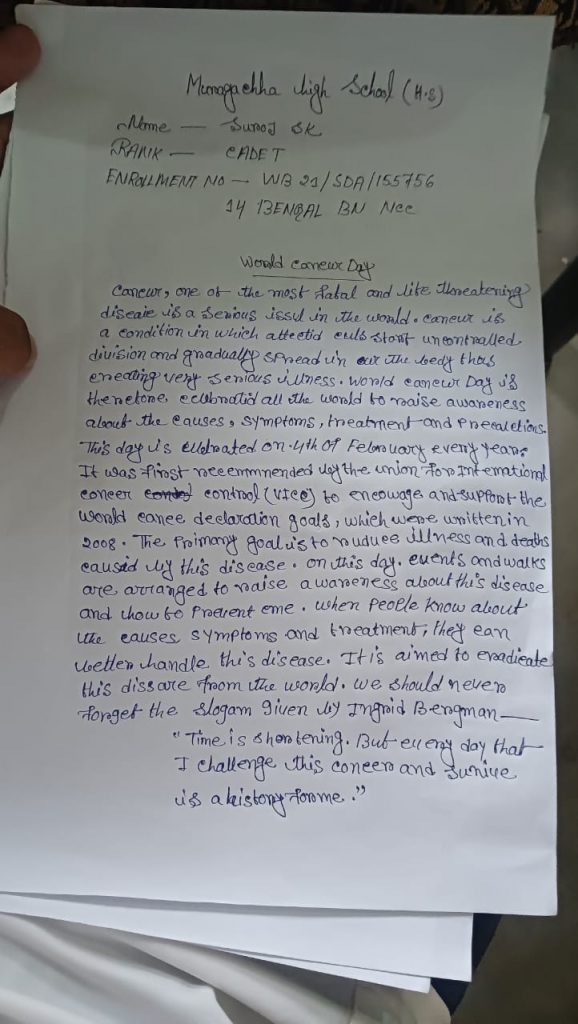 Muragachha High School (H.S)
Name — Suroj SK
RANK — CADET
ENROLLMENT NO — WB 21/SDA/155756
14 BENGAL BN NCC
World Cancer Day
Cancer, one of the most fatal and life threatening
disease is a serious issue in the world. cancer is
a condition in which affected cells start uncontrolled
division and gradually spread in our the body thus
creating very serious illness. World cancer Day is
therefore, celebrated all the world to raise awareness
about the causes, symptoms, treatment and precautions.
This day is celebrated on 4th Of February every year.
It was first recommended by the union For International
cancer control (UICC) to encourage and support the
World cancer declaration goals, which were written in
2008. The Primary goal is to reduce illness and deaths
caused by this disease. on this day. events and walks
are arranged to raise awareness about this disease
and how to Prevent one. when People know about
the causes symptoms and treatment, they can
better handle this disease. It is aimed to eradicate
this from the world. we should never
forget the slogam given by Ingrid Bergman —
"Time is shortening. But every day that
I challenge this cancer and survive
is a history for me."